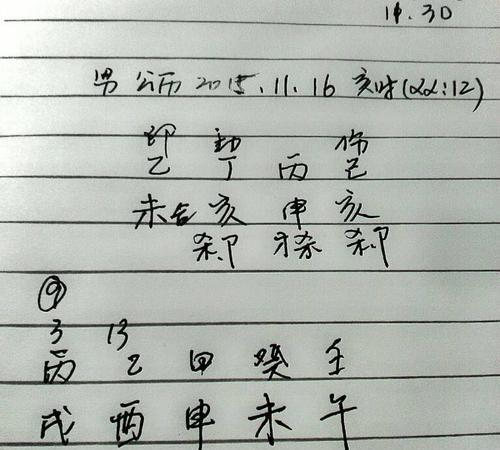 11.30
男 公历 2015.11.16 亥时(22:12)
印 劫 伤
乙 丁 丙 己
未合 亥 申 亥
杀印 才杀 杀印
⑨
3 13
丙 乙 甲 癸 壬
戌 酉 申 未 午